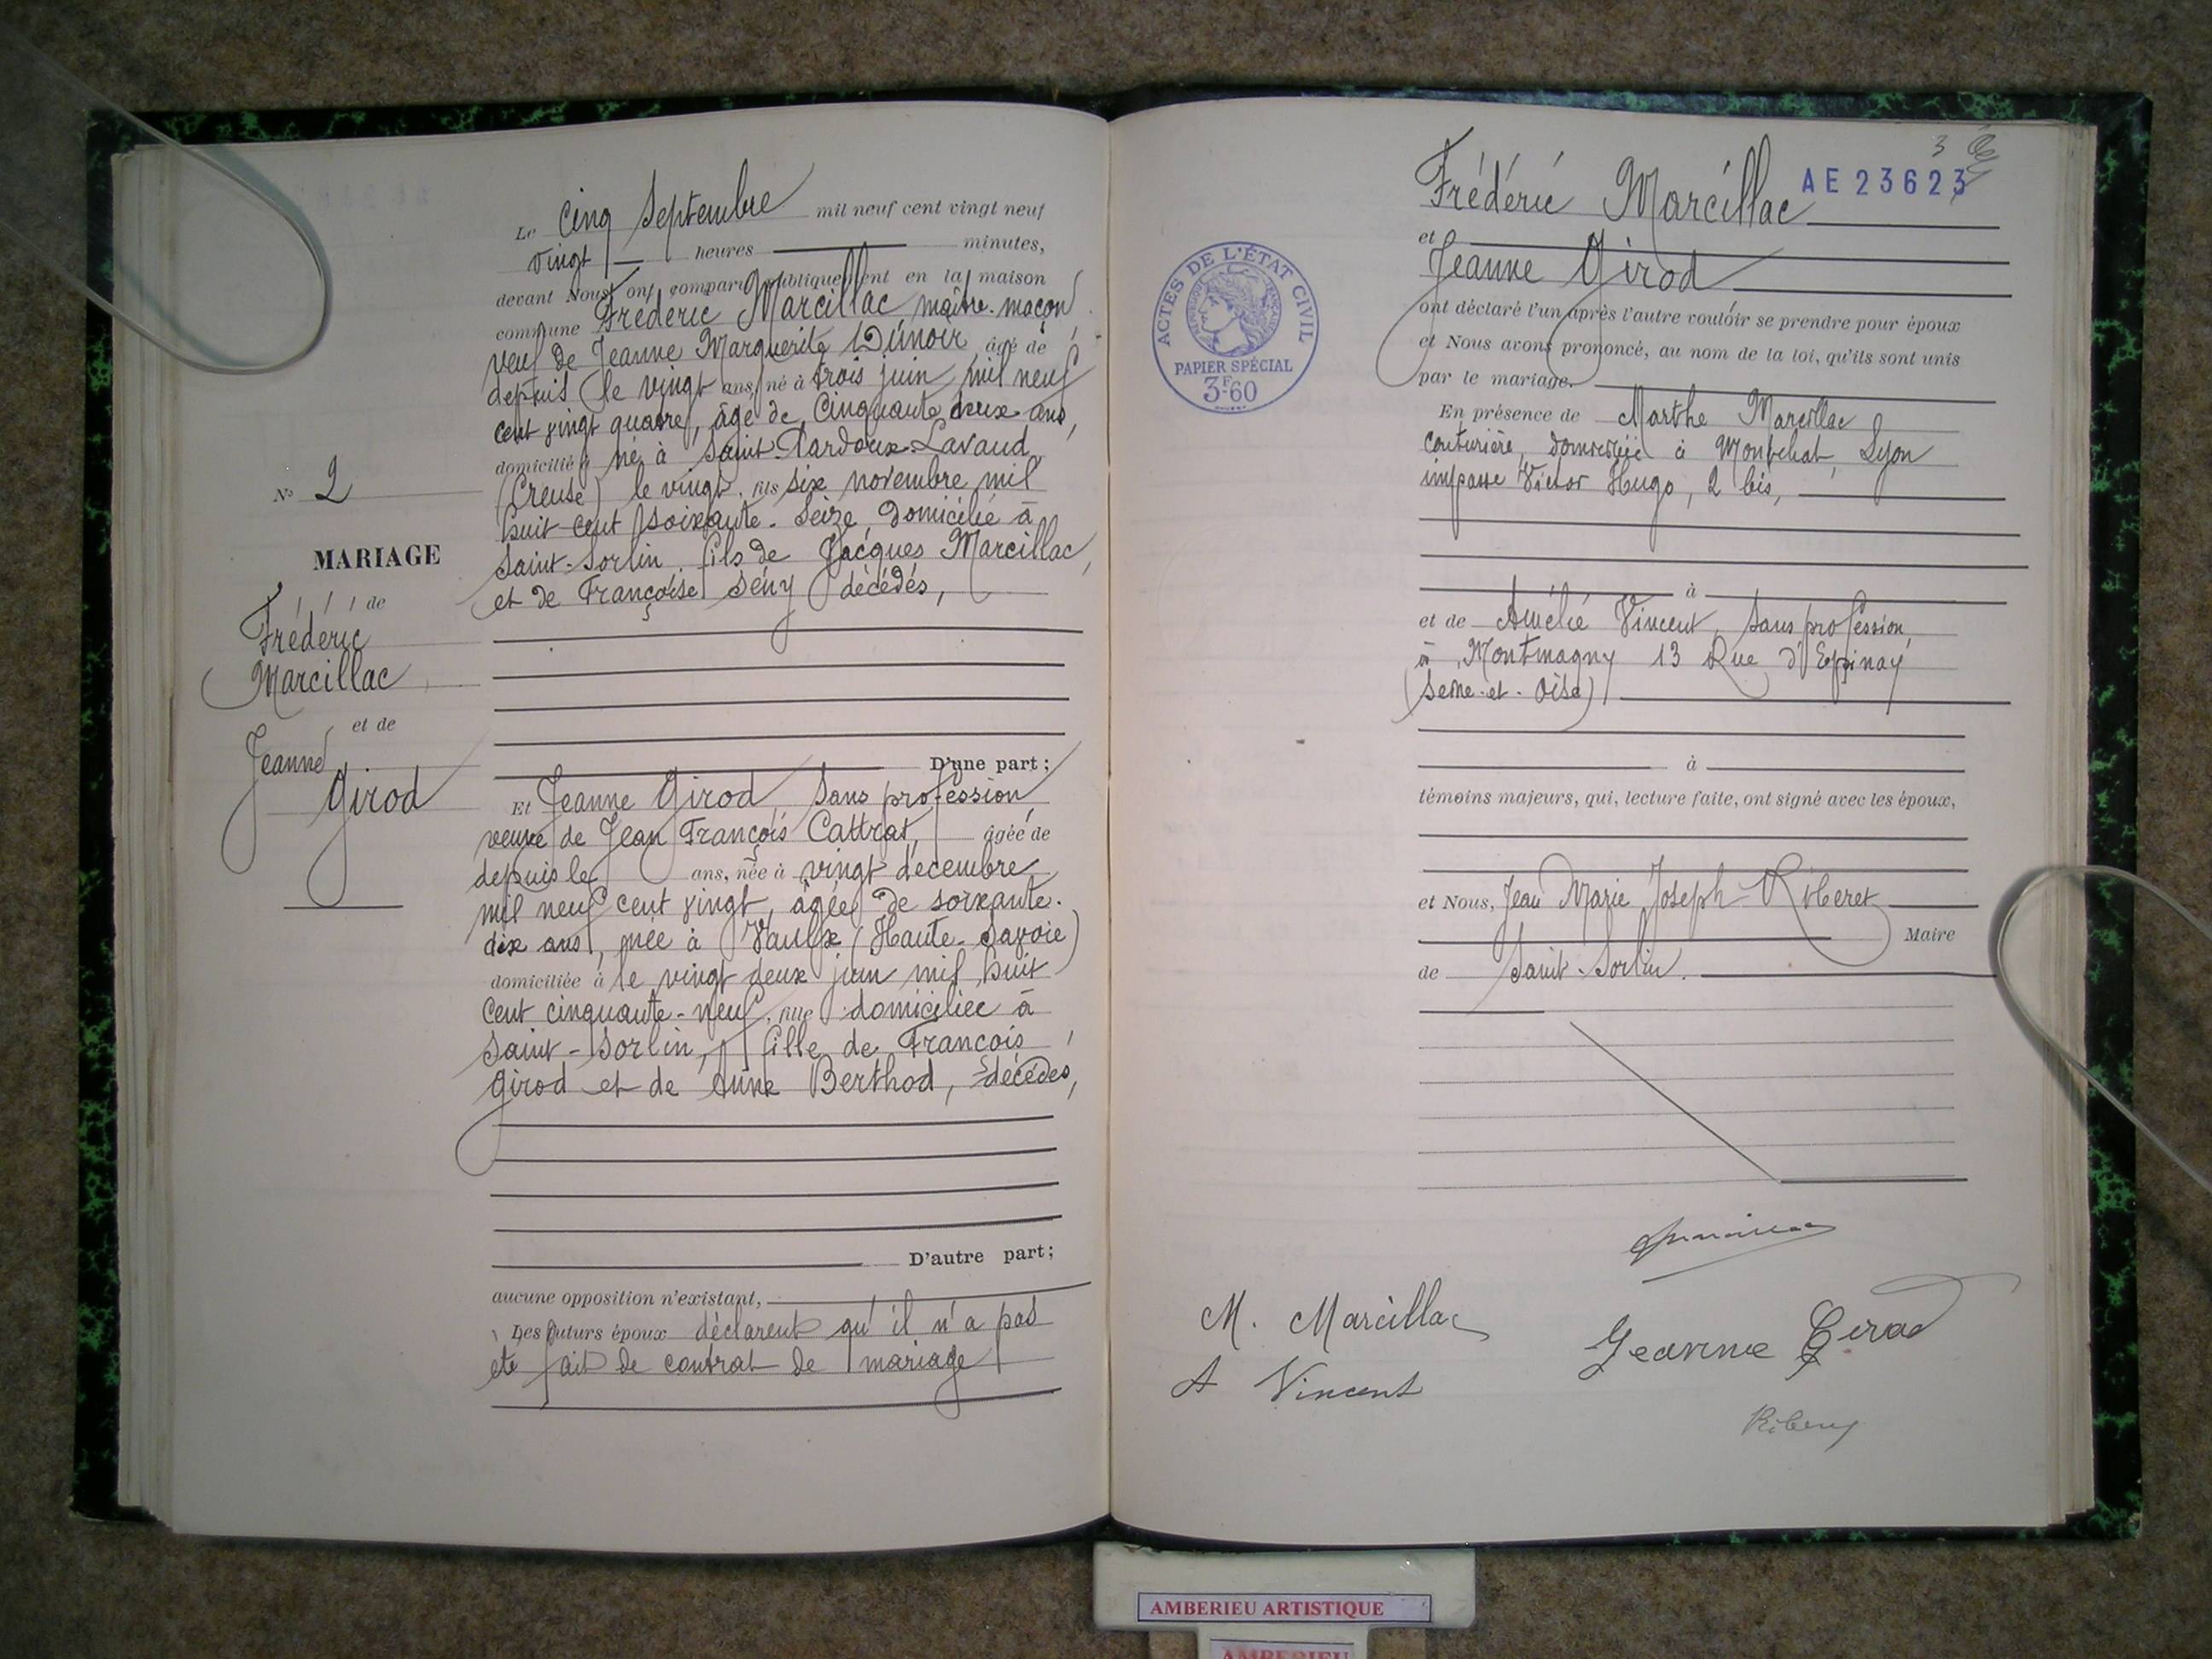 Le cinq Septembre mil neuf cent vingt neuf
vingt heures minutes,
devant Nous ont comparu publiquement en la maison
commune Frédéric Marcillac maître-maçon
veuf de Jeanne Marguerite Dunoir âgé de
depuis le vingt ans, né à trois juin mil neuf
cent vingt quatre, âgé de cinquante deux ans,
domicilié à né à Saint-Pardoux-Lavaud
(Creuse) le vingt fils six novembre mil
huit cent soixante-seize domicilié à
Saint-Sorlin fils de Jacques Marcillac,
et de Françoise Sény décédés,
N° 2
MARIAGE
de
Frédéric
Marcillac
et de
Jeanne
Girod
D'une part;
Et Jeanne Girod, Sans profession,
veuve de Jean François Cattrat, âgée de
depuis le ans, née à vingt décembre
mil neuf cent vingt, âgée de soixante-
dix ans, née à Vaulx (Haute-Savoie)
domiciliée à le vingt deux juin mil huit
cent cinquante-neuf, fille domiciliée à
Saint-Sorlin, fille de François
Girod et de Anne Berthod, décédés,
D'autre part;
aucune opposition n'existant,
Les futurs époux déclarent qu'il n'a pas
été fait de contrat de mariage
3
AE 23623
Frédéric Marcillac
et
Jeanne Girod
ont déclaré l'un après l'autre vouloir se prendre pour époux
et Nous avons prononcé, au nom de la loi, qu'ils sont unis
par le mariage.
ACTES DE L'ÉTAT CIVIL
RÉPUBLIQUE FRANÇAISE
PAPIER SPÉCIAL
3F.60
En présence de Marthe Marcillac
couturière, domiciliée à Montchat, Lyon
impasse Victor Hugo, 2 bis,
à
et de Amélie Vincent, Sans profession,
à Montmagny 13 Rue d'Epinay
(Seine-et-Oise)
à
témoins majeurs, qui, lecture faite, ont signé avec les époux,
et Nous, Jean Marie Joseph Riberet
Maire
de Saint-Sorlin.
M. Marcillac
Jeanne Girod
A Vincent
AMBERIEU ARTISTIQUE
AMBERIEU